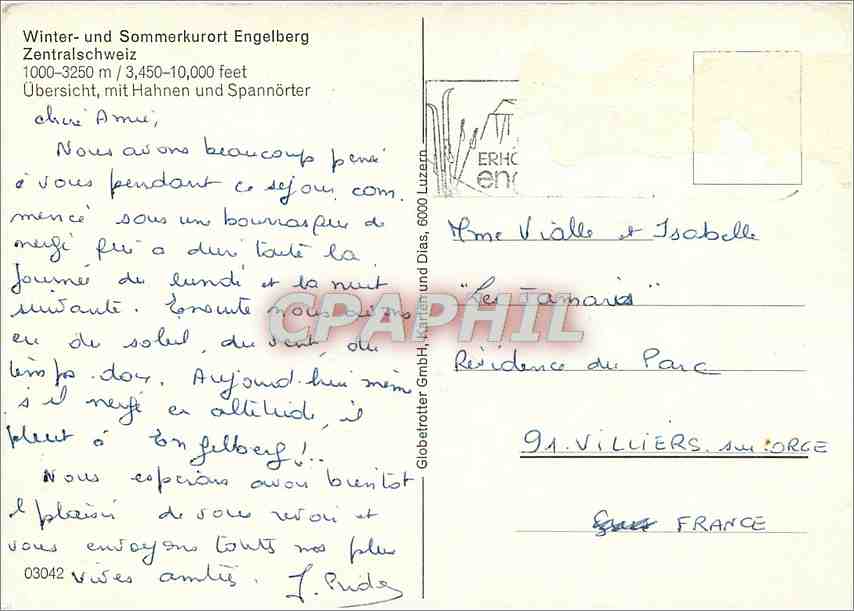 Winter- und Sommerkurort Engelberg
Zentralschweiz
1000–3250 m / 3,450–10,000 feet
Übersicht, mit Hahnen und Spannörter
chère Amie,
Nous avons beaucoup pensé
à vous pendant ce séjour com.
mencé sous une bourrasque de
neige qui a duré toute la
journée de lundi et la nuit
suivante. Ensuite nous avons
eu du soleil, du vent, du
temps doux. Aujourd'hui même
s'il neige en altitude, il
pleut à Engelberg!..
Nous espérons avoir bientôt
le plaisir de vous revoir et
vous envoyons toutes nos plus
vives amitiés.
03042
Globetrotter GmbH, Karten und Dias, 6000 Luzern
ERHO
en
Mme Vialle et Isabelle
"Les Tamaris"
Résidence du Parc
91. VILLIERS. sur. ORGE
FRANCE
CPAPHIL